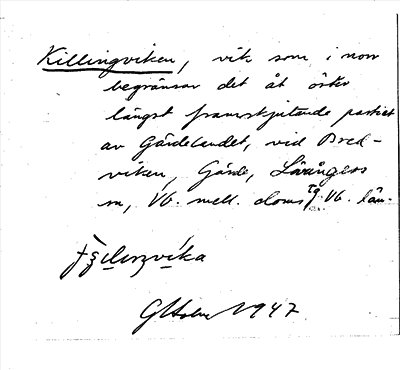 Killingviken, vik som i norr
begränsar det åt öster
längst framskjutande partiet
av Gärdelandet, vid Bred-
viken, Gärde, Lövångers
sn, Vb. mell. doms tg Vb. län.
G Holm 1947